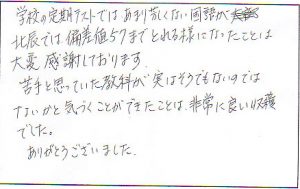 学校の定期テストでは、あまり芳しくない国語が
北辰では偏差値57までとれる様になったことは
大変感謝しております。
苦手と思っていた教科が実はそうでもないのでは
ないかと気づくことができたことは、非常に良い収穫
でした。
ありがとうございました。